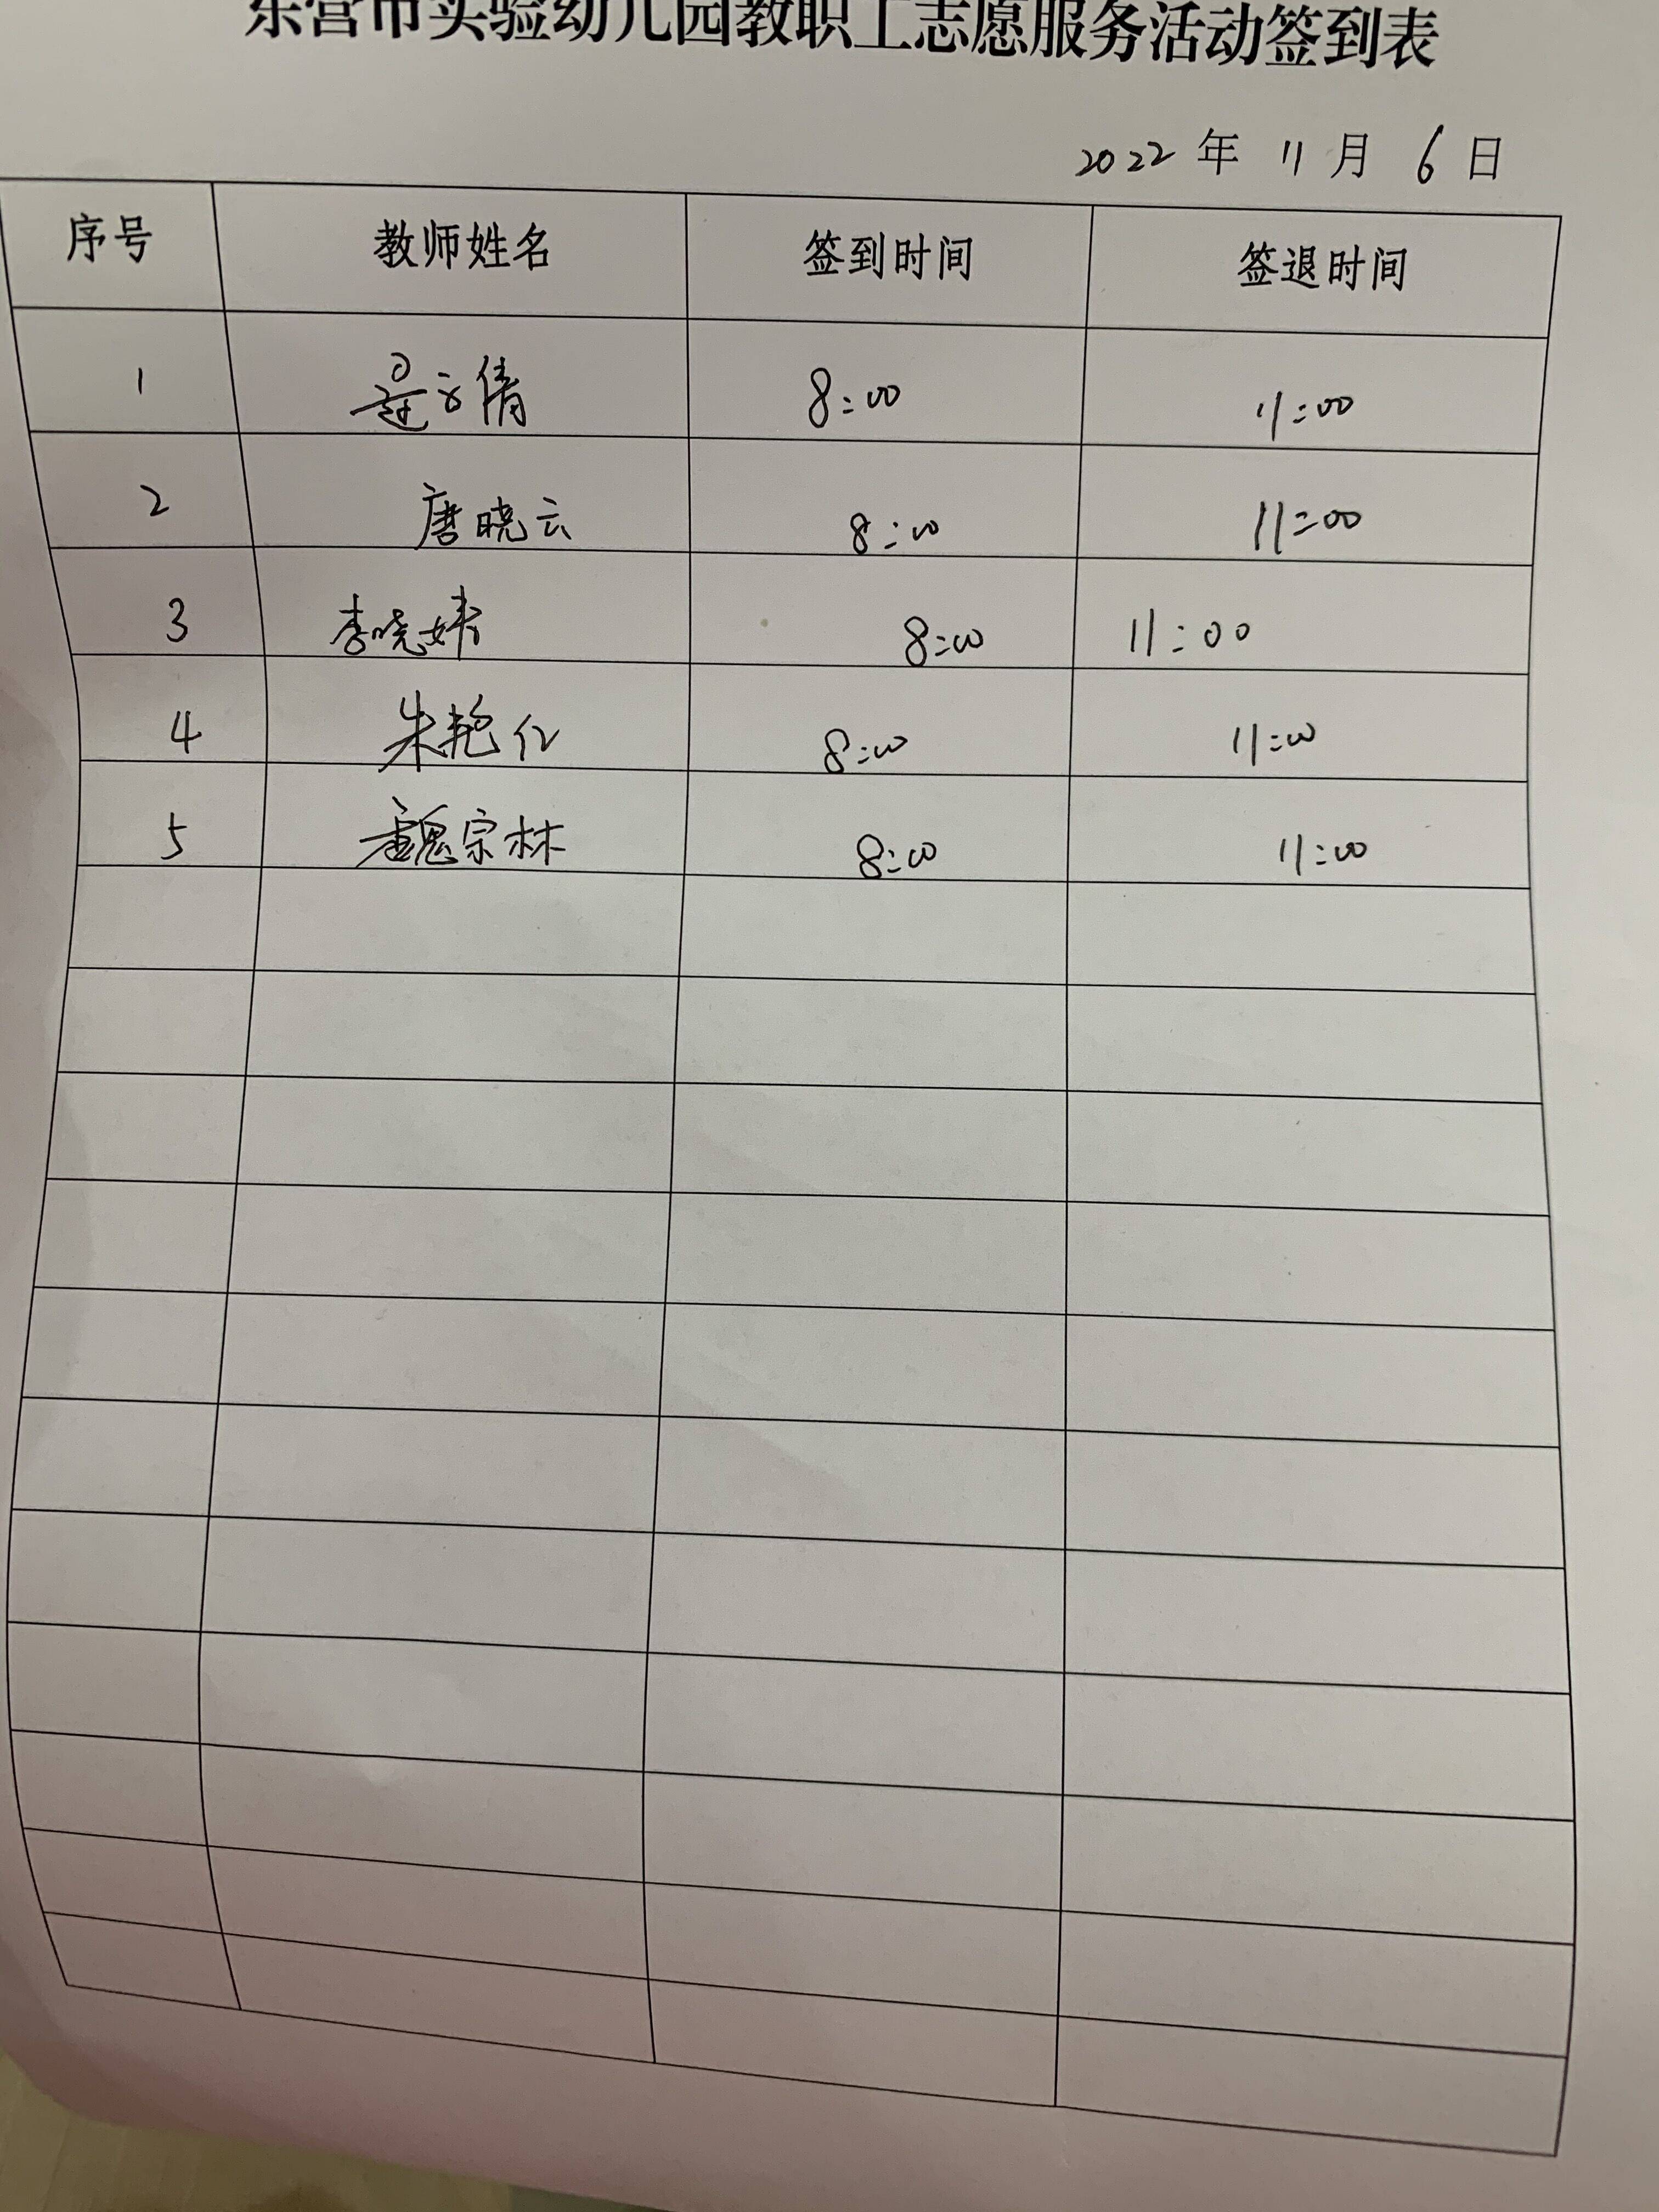 东营市实验幼儿园教职工志愿服务活动签到表
2022 年 11 月 6 日
序号 教师姓名 签到时间 签退时间
1 文倩 8:00 11:00
2 唐晓云 8:00 11:00
3 李晓婧 8:00 11:00
4 朱艳红 8:00 11:00
5 魏宗林 8:00 11:00